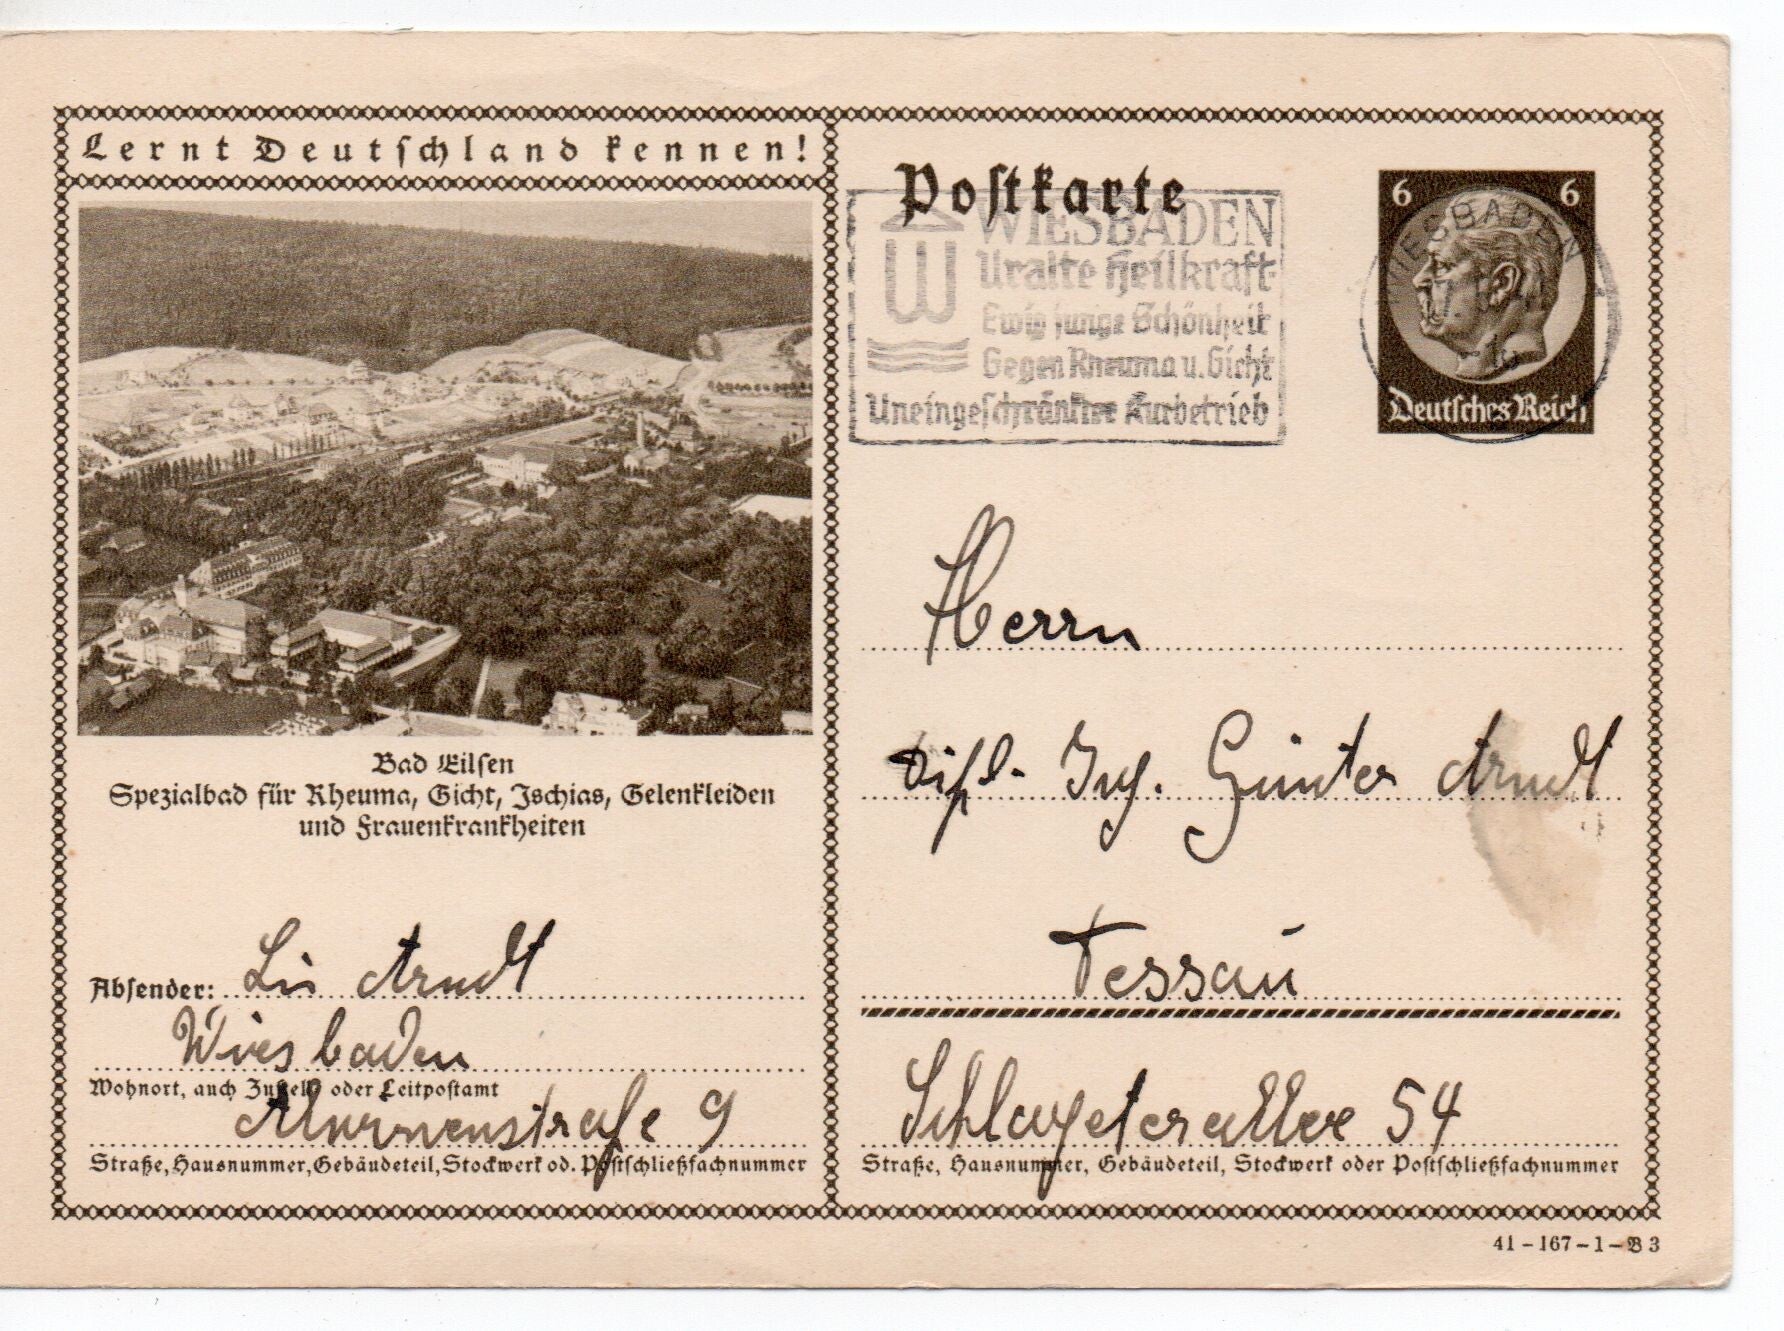 Lernt Deutschland kennen!
Bad Eilsen
Spezialbad für Rheuma, Gicht, Ischias, Gelenkleiden
und Frauenkrankheiten
Absender: Lis Arndt
Wiesbaden
Wohnort, auch Zustell- oder Leitpostamt
9
Straße, Hausnummer, Gebäudeteil, Stockwerk od. Postschließfachnummer
Postkarte
WIESBADEN
Uralte Heilkraft
Ewig junge Schönheit
Gegen Rheuma u. Gicht
Uneingeschränkter Kurbetrieb
6 6
WIESBADEN
Deutsches Reich
Herrn
Dipl. Ing. Günter Arndt
Dessau
Schlageterallee 54
Straße, Hausnummer, Gebäudeteil, Stockwerk oder Postschließfachnummer
41-167-1-B3